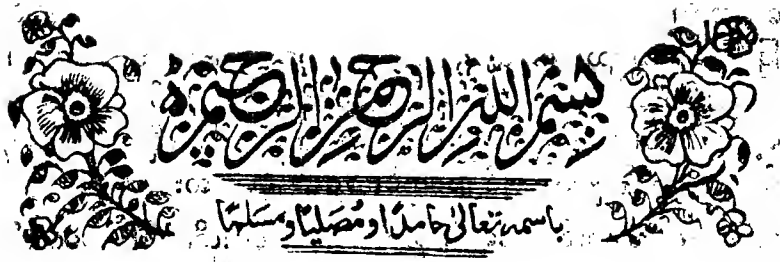 بسم الله الرحمن الرحيم
باسمہ تعالیٰ حامدًا و مُصلیًا و مسلمًا